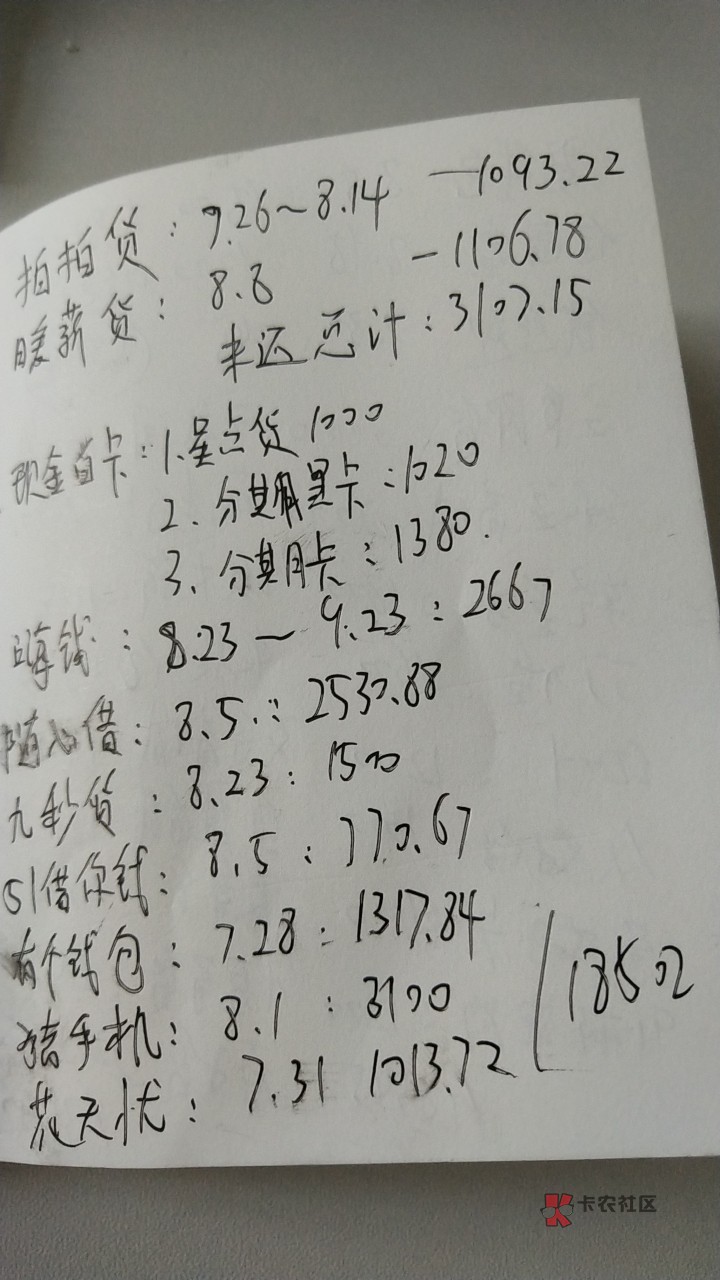 拍拍货：7.26～8.14 —1093.22
暖薪货：8.8 -1106.78
来还总计：3107.15
现金白卡：1.星点货 1000
2、分期黑卡：1020
3、分期月卡：1380.
嗨钱：8.23—9.23：2667
随心借：8.5.：2530.88
九秒货：8.23：1500
51借你钱：8.5：770.67
有个钱包：7.28：1317.84
手机：8.1：3100
花无忧：7.31 1013.72
18502
卡农社区